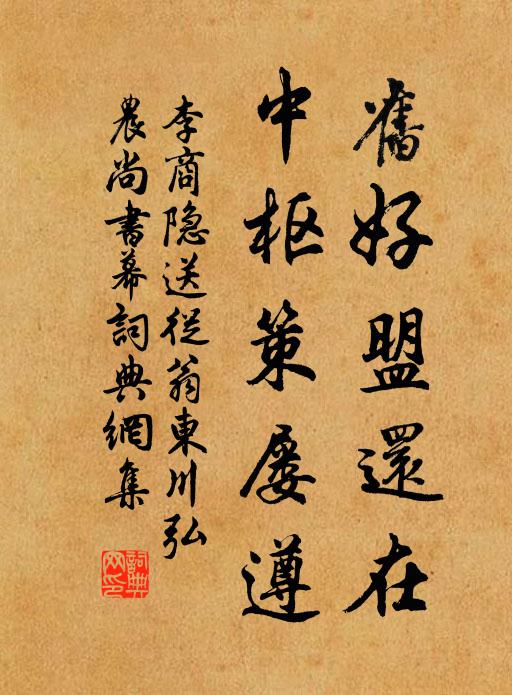 舊好盟還在
中枢策屡遵
李商隐送從翁東川弘
農尚書幕詞典網集
詞典网印